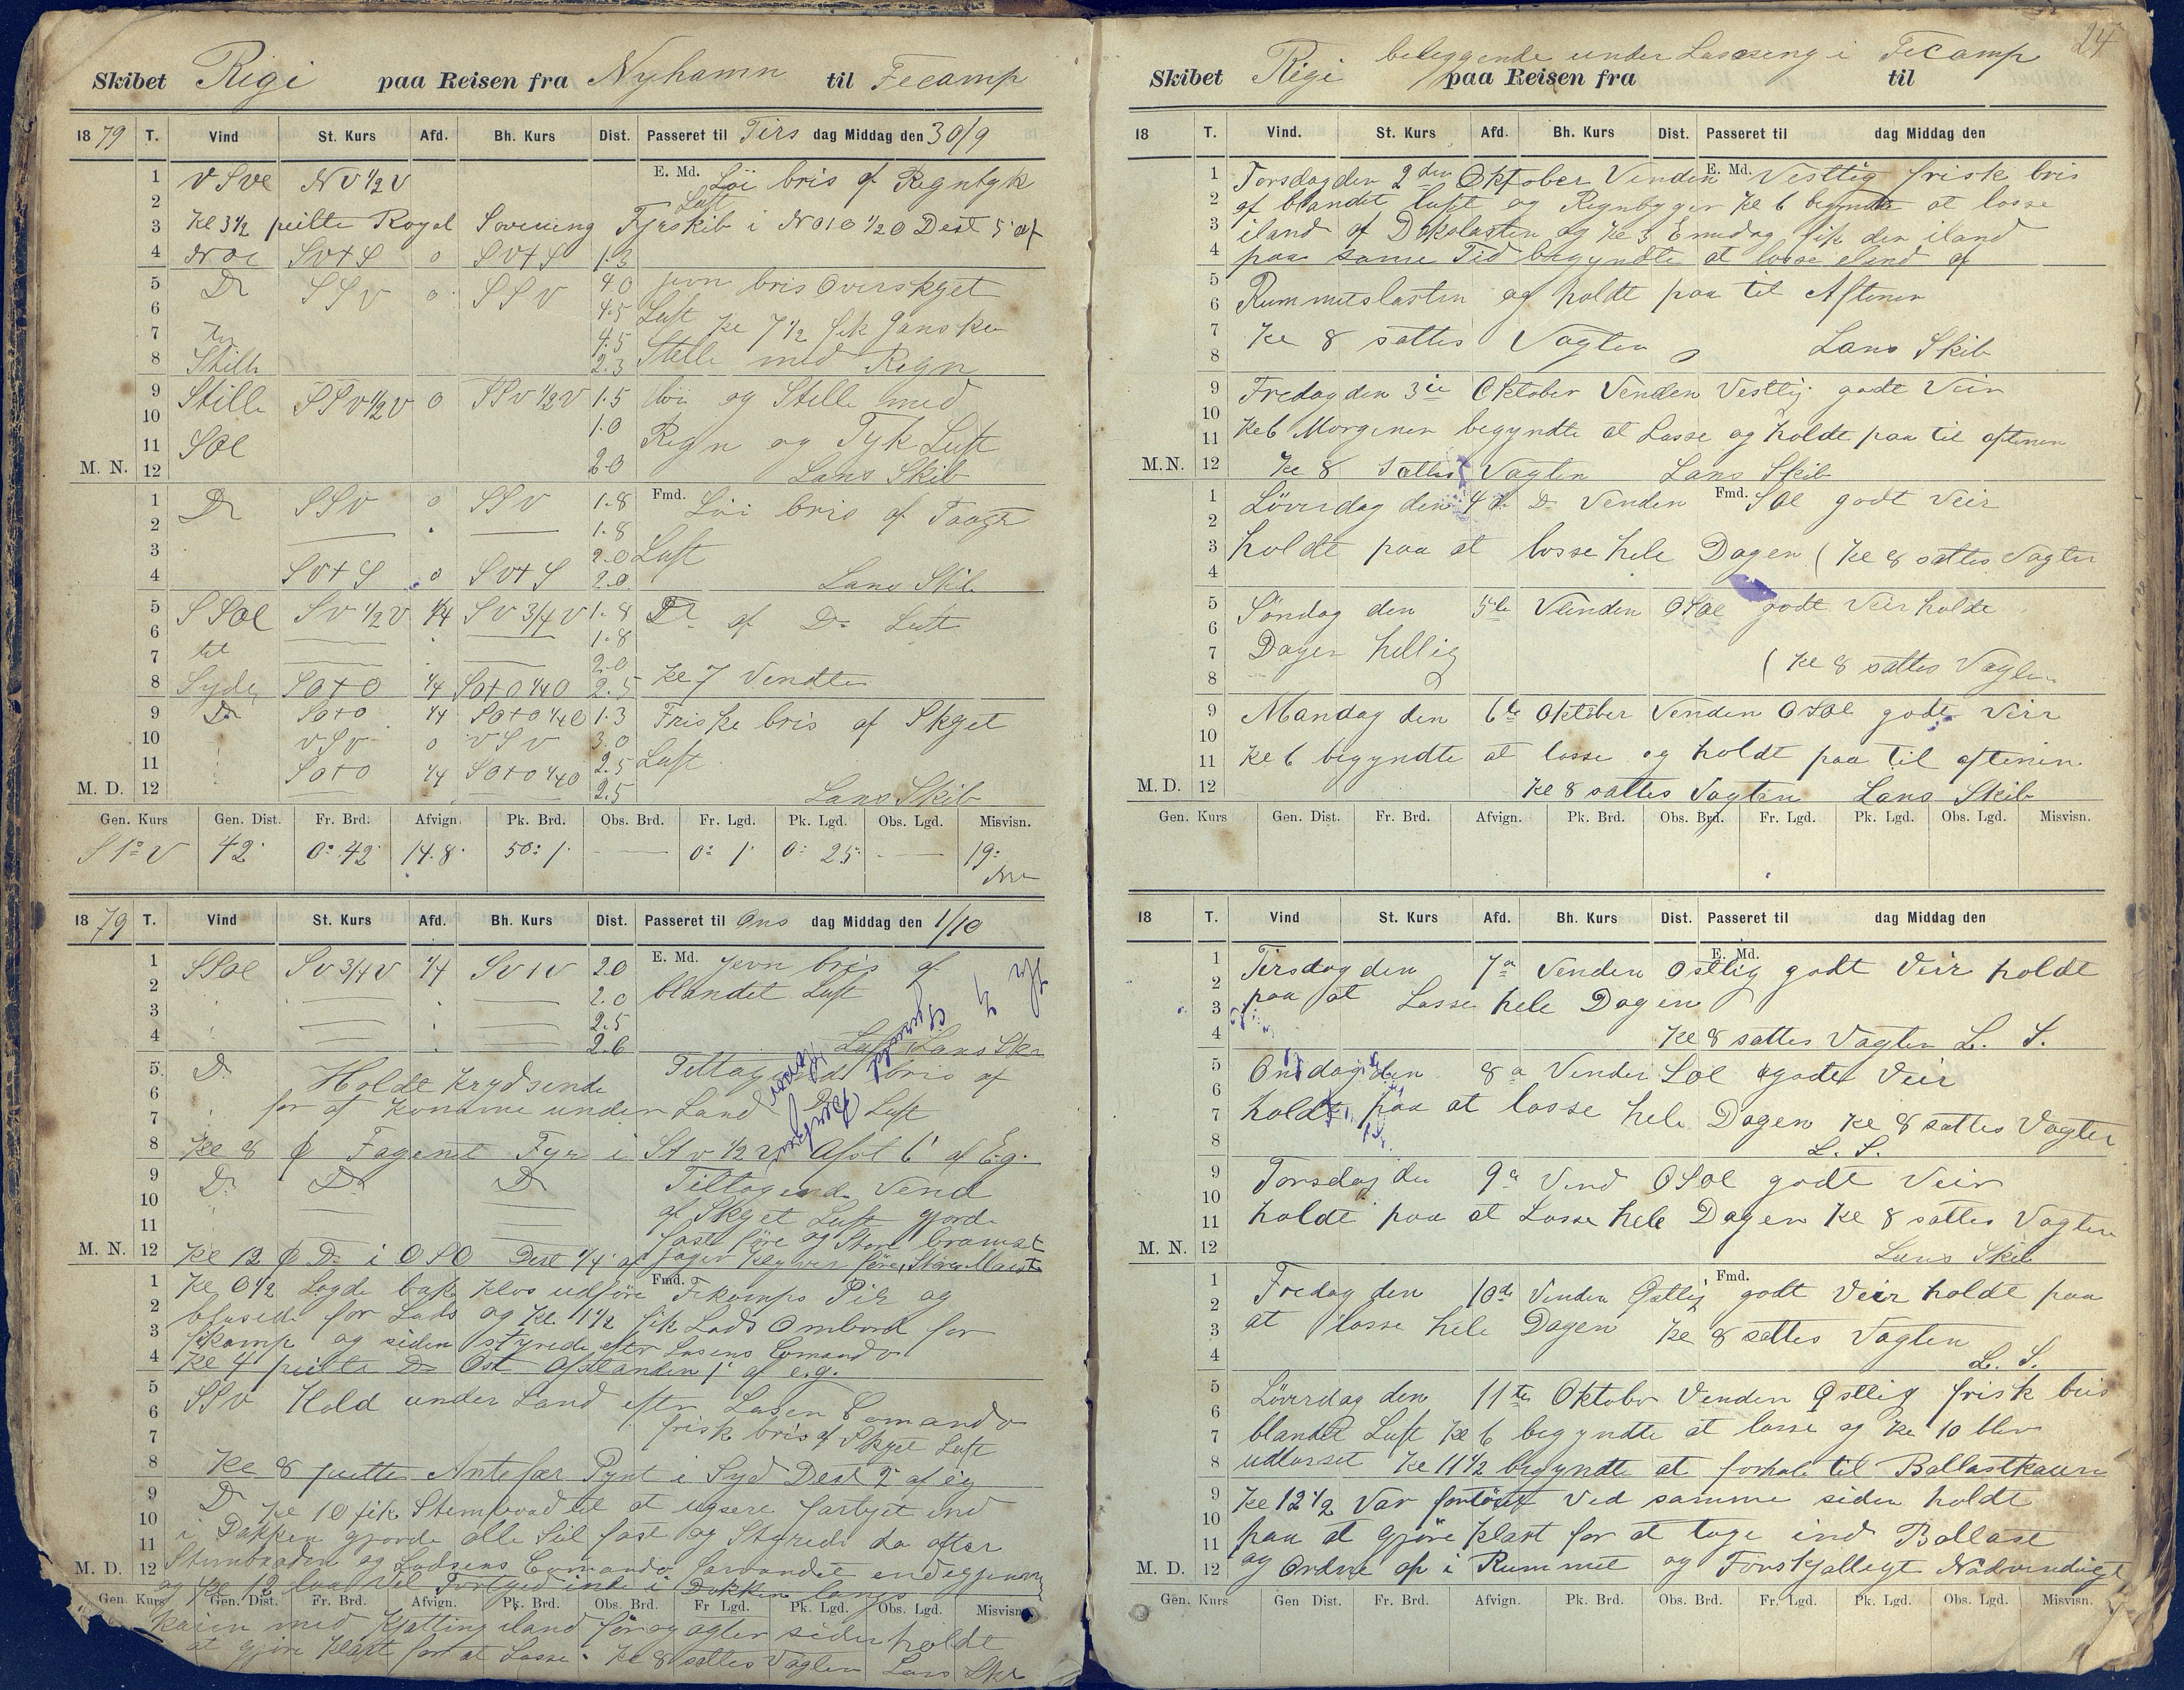 Skibet Rigi paa Reisen fra Nyhamn til Fecamp
1879 T. Vind St. Kurs Afd. Bh. Kurs Dist. Passeret til Tirs dag Middag den 30/9
1 V SVe NV 1/2 V E. Md. Löi bris af Regntyk
2 Luft
3 Kl 3 1/2 peilte Royal Fyrskib i NO 1/2 O Dest 5' af
4 SV+S o SV+S 1.3
5 Do SSV o SSV 4.0 jevn bris Overskyet
6 4.5 Luft Kl 7 1/2 fik ganske
7 4.5 Stille med Regn
8 Stille 2.3
9 Stille SSV 1/2 V o SSV 1/2 V 1.5 löi og Stille med
10 1.0 Regn og Tyk Luft
11 SOe
M. N. 12 2.0 Lans Skib
1 Do SSV o SSV 1.8 Fmd. Löi bris af Taaget
2 1.8
3 2.0 Luft
4 SV+S o SV+S 2.0 Lans Skib
5 SSOe SV 1/2 V 1/4 SV 3/4 V 1.8 Do af Do Luft
6 til 1.8
7 2.0
8 Syde SO+O 1/4 SO+O 1/4 O 2.5 Kl 7 Vendte
9 Do SO+O 1/4 SO+O 1/4 O 1.3 Friske bris af Skyet
10 VSV o VSV 3.0
11 SO+O 1/4 SO+O 1/4 O 2.5 Luft
M. D. 12 2.5 Lans Skib
Gen. Kurs Gen. Dist. Fr. Brd. Afvign. Pk. Brd. Obs. Brd. Fr. Lgd. Pk. Lgd. Obs. Lgd. Misvisn.
S 1° V 42' 0° 42' 14.8' 50° 1' 0° 1' 0° 25' 19°
1879 T. Vind St. Kurs Afd. Bh. Kurs Dist. Passeret til Ons dag Middag den 1/10
1 SSOe SV 3/4 V 1/4 SV 1 V 2.0 E. Md. jevn bris af
2 2.0 blandet Luft
3 2.5
4 2.6 Lans Skr
5 Do Holdt krydsende Tiltagende bris af
6 for at komme under Land Do Luft
7
8 Kl 8 Fagenet Fyr i StV 1/2 V Afst 6' af Eg.
9 Do Do Do Tiltagende Vend
10 af Skyet Luft gjorde
11 fast före og Store bramst
M. N. 12 Kl 12 Do i OSO Dest 1/4 af jager Klyver
1 Kl 0 1/2 Lagde bak klos udföre Fmd. Fekamps Pir og
2 blusede for Lods og Kl 1 1/2 fik Lods Ombord for
3 fikamp og siden styrede efter Losens Comando
4 Kl 4 peilte Do Ost Afstanden 1' af e.g.
5 SSV Hold under Land eftr Losen Comando
6 frisk bris af Skyet Luft
7
8 Kl 8 peilte Antefær Pynt i Syd Dest 2' af eg
9 Do Kl 10 fik Stembaad til at ugsere fartyet ind
10 i Dokken gjorde alle Seil fast og Styrede da efter
11 Stembaaden og Lodsens Comando
M. D. 12 og Kl 12 laa Vel Fortyed inde i Dokken langs
Gen. Kurs Gen. Dist. Fr. Brd. Afvign. Pk. Brd. Obs. Brd. Fr Lgd. Pk. Lgd. Obs. Lgd. Misvisn.
Kaien med Kjetting iland för og agter siden holdt
at gjöre klart for at Losse. Kl 8 sattes Vagten Lans Skr
24
Skibet Rigi beleggende under Lossing i Fecamp paa Reisen fra til
18 T. Vind. St. Kurs Afd. Bh. Kurs Dist. Passeret til dag Middag den
1 Torsdag den 2den Oktober Venden E. Md. Vestlig frisk bris
2 af blandet luft og Regnbyger Kl 6 begyndte at losse
3 iland af Dekslasten og Kl 3 Emdag fik den iland
4 paa same Tid begyndte at losse iland af
5
6 Rummetslasten og holdt paa til Aftenen
7 Kl 8 sattes Vagten Lans Skib
8
9 Fredag den 3ie Oktober Venden Vestlig godt Veir
10
11 Kl 6 Morgenen begyndte at Losse og holdt paa til aftenen
M.N. 12 Kl 8 Sattes Vagten Lans Skib
1 Löverdag den 4de Do Venden Fmd. SOe godt Veir
2
3 holdt paa at losse hele Dagen (Kl 8 sattes Vagten
4
5 Söndag den 5te Venden OSOe godt Veir holdt
6
7 Dagen hellig (Kl 8 sattes Vagten
8
9 Mandag den 6te Oktober Venden OSOe godt Veir
10
11 Kl 6 begyndte at losse og holdt paa til aftenen
M. D. 12 Kl 8 sattes Vagten Lans Skib
Gen. Kurs Gen. Dist. Fr. Brd. Afvign. Pk. Brd. Obs. Brd. Fr. Lgd. Pk. Lgd. Obs. Lgd. Misvisn.
18 T. Vind St. Kurs Afd. Bh. Kurs Dist. Passeret til dag Middag den
1 Tirsdag den 7de Venden E. Md. Ostlig godt Veir holdt
2 paa at Losse hele Dagen
3
4 Kl 8 sattes Vagten L. S.
5 Onsdag den 8de Venden SOe godt Veir
6
7 holdt paa at losse hele Dagen Kl 8 sattes Vagten
8 L. S.
9 Torsdag den 9de Vend OSOe godt Veir
10
11 holdt paa at Losse hele Dagen Kl 8 sattes Vagten
M. N. 12 Lans Skib
1 Fredag den 10de Venden Östlig Fmd. godt Veir holdt paa
2 at losse hele Dagen Kl 8 sattes Vagten
3
4 L. S.
5 Löverdag den 11te Oktober Venden Östlig frisk bris
6
7 blandet Luft Kl 6 begyndte at losse og Kl 10 blev
8 udlosset Kl 11 1/2 begyndte at forhale til Ballastkaien
9 Kl 12 1/2 Var fortöiet Ved samme siden holdt
10
11 paa at gjöre klart for at tage ind Ballast
M. D. 12 og Ordne op i Rummet og Forskjalligt Nödvendigt
Gen. Kurs Gen Dist. Fr. Brd. Afvign. Pk. Brd. Obs. Brd. Fr. Lgd. Pk. Lgd. Obs. Lgd. Misvisn.